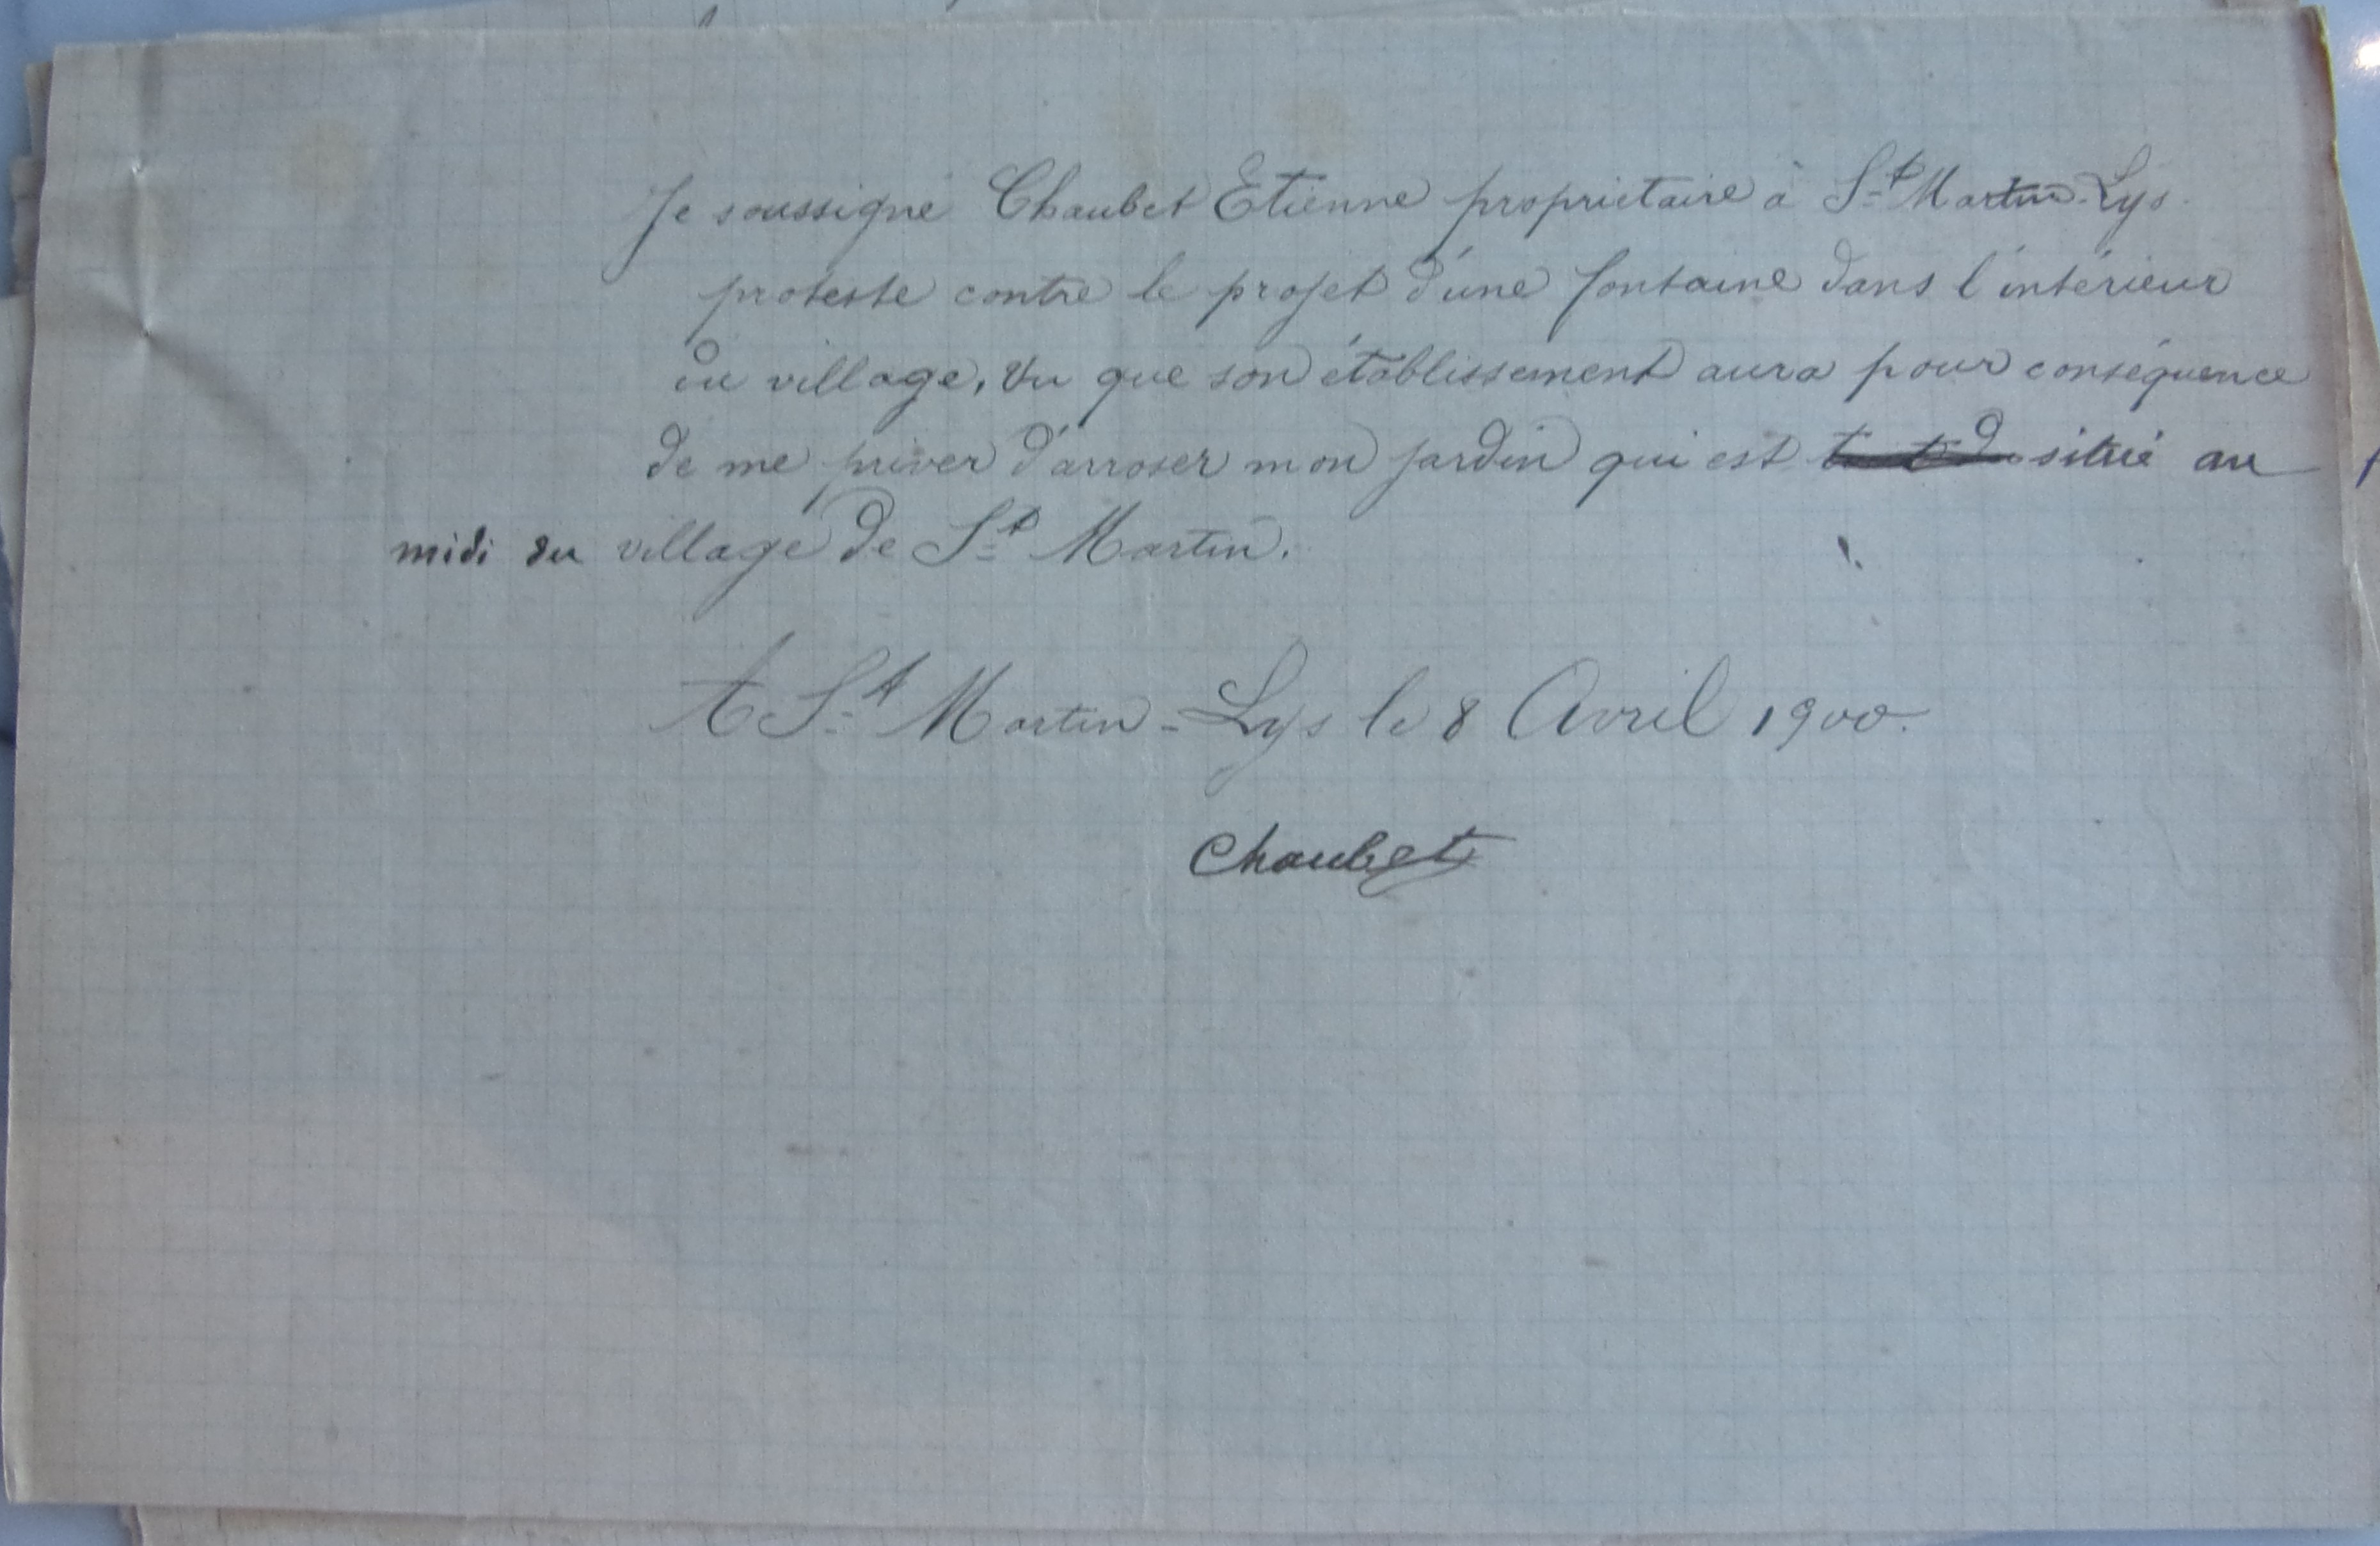 Je soussigné Chaubet Etienne propriétaire à St Martin-Lys.
proteste contre le projet d'une fontaine dans l'intérieur
du village, Vu que son établissement aura pour conséquence
de me priver d'arroser mon jardin qui est situé au
midi du village de St Martin.
A St Martin-Lys le 8 Avril 1900.
Chaubet